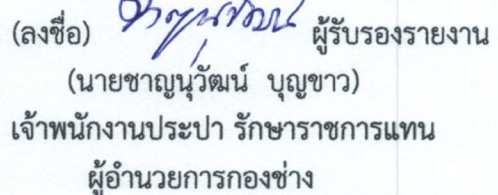 (ลงชื่อ) ผู้รับรองรายงาน
(นายชาญนุวัฒน์ บุญขาว)
เจ้าพนักงานประปา รักษาราชการแทน
ผู้อำนวยการกองช่าง